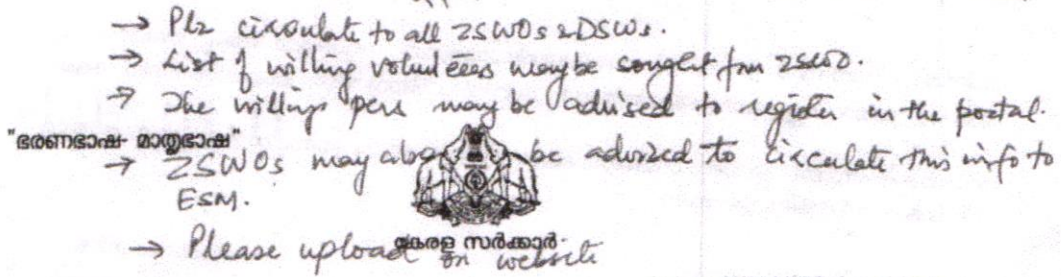 → Plz circulate to all ZSWOs & DSWs.
→ List of willing volunteers may be sought from ZSWO.
→ The willing pers may be advised to register in the portal.
"ഭരണഭാഷ- മാതൃഭാഷ"
→ ZSWOs may also be advized to circulate this info to
ESM.
കേരള സർക്കാർ
→ Please upload on website